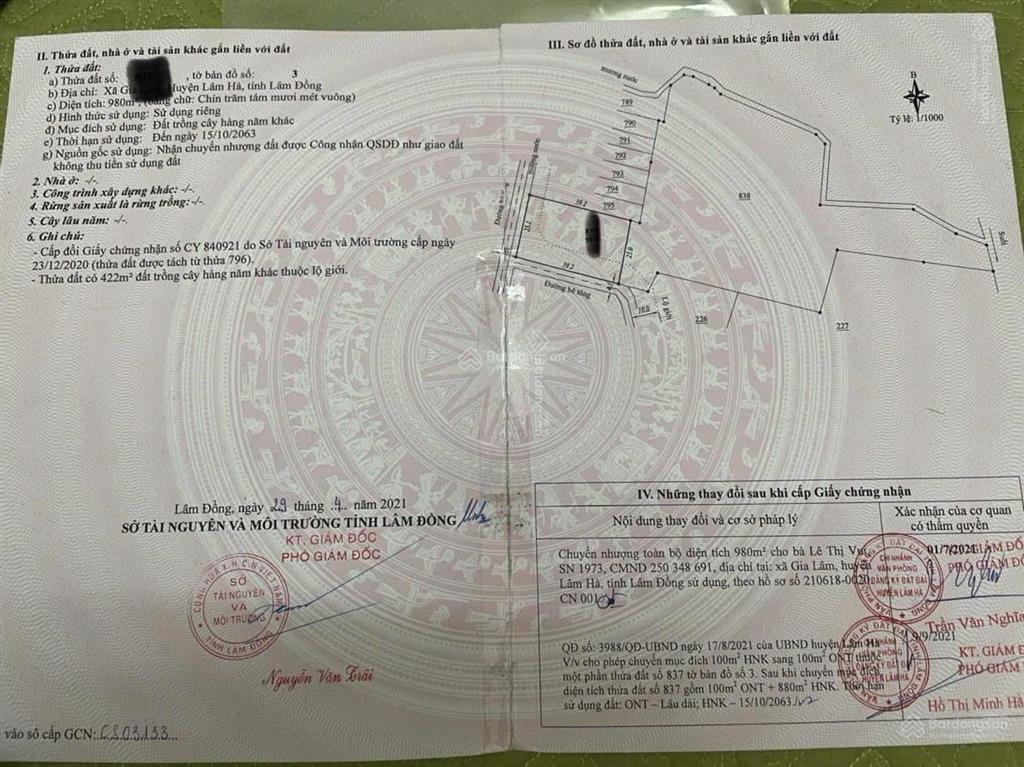 II. Thửa đất, nhà ở và tài sản khác gắn liền với đất
1. Thửa đất:
a) Thửa đất số: , tờ bản đồ số: 3
b) Địa chỉ: Xã Gia Huyện Lâm Hà, tỉnh Lâm Đồng
c) Diện tích: 980m², (bằng chữ: Chín trăm tám mươi mét vuông)
d) Hình thức sử dụng: Sử dụng riêng
đ) Mục đích sử dụng: Đất trồng cây hàng năm khác
e) Thời hạn sử dụng: Đến ngày 15/10/2063
g) Nguồn gốc sử dụng: Nhận chuyển nhượng đất được Công nhận QSDĐ như giao đất
không thu tiền sử dụng đất
2. Nhà ở: -/-
3. Công trình xây dựng khác: -/-
4. Rừng sản xuất là rừng trồng: -/-
5. Cây lâu năm: -/-
6. Ghi chú:
- Cấp đổi Giấy chứng nhận số CY 840921 do Sở Tài nguyên và Môi trường cấp ngày
23/12/2020 (thửa đất được tách từ thửa 796).
- Thửa đất có 422m² đất trồng cây hàng năm khác thuộc lộ giới.
Lâm Đồng, ngày 29 tháng 4 năm 2021
SỞ TÀI NGUYÊN VÀ MÔI TRƯỜNG TỈNH LÂM ĐỒNG
KT. GIÁM ĐỐC
PHÓ GIÁM ĐỐC
CỘNG HÒA X.H.C.N VIỆT NAM
SỞ
TÀI NGUYÊN
VÀ
MÔI TRƯỜNG
TỈNH LÂM ĐỒNG
Nguyễn Văn Trãi
vào sổ cấp GCN: CS03133
III. Sơ đồ thửa đất, nhà ở và tài sản khác gắn liền với đất
B
Tỷ lệ: 1/1000
mương nước
789
790
791
792
793
794
795
838
mương nước
39.2
25.0
39.2
Đường bê tông
10.0
Lộ giới
226
227
Suối
Batdongsan
IV. Những thay đổi sau khi cấp Giấy chứng nhận
Nội dung thay đổi và cơ sở pháp lý
Xác nhận của cơ quan
có thẩm quyền
Chuyển nhượng toàn bộ diện tích 980m² cho bà Lê Thị
SN 1973, CMND 250 348 691, địa chỉ tại: xã Gia Lâm, huyện
Lâm Hà, tỉnh Lâm Đồng sử dụng, theo hồ sơ số 210618-0020
CN 001
01/7/2021
PHÓ GIÁM ĐỐC
CHI NHÁNH
VĂN PHÒNG
ĐĂNG KÝ ĐẤT ĐAI
HUYỆN LÂM HÀ
Trần Văn Nghĩa
QĐ số: 3988/QĐ-UBND ngày 17/8/2021 của UBND huyện Lâm Hà
V/v cho phép chuyển mục đích 100m² HNK sang 100m² ONT thuộc
một phần thửa đất số 837 tờ bản đồ số 3. Sau khi chuyển mục đích
diện tích thửa đất số 837 gồm 100m² ONT + 880m² HNK. Thời hạn
sử dụng đất: ONT – Lâu dài; HNK – 15/10/2063.
9/9/2021
KT. GIÁM
PHÓ GIÁM
CHI NHÁNH
VĂN PHÒNG
ĐĂNG KÝ ĐẤT ĐAI
HUYỆN LÂM HÀ
Hồ Thị Minh Hà
Batdongsan